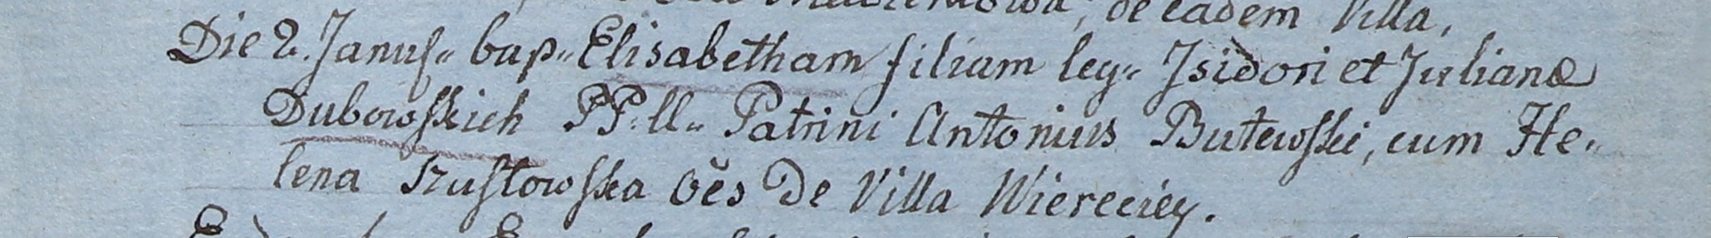 de eadem Villa,
Die 2. Januſ„ bap„ Elisabetham filiam leg„ Isidori et Julianæ
Dubowſkich PP. ll„ Patrini Antonius Butewſki, cum He„
lena Szuſtowſka oẽs De Villa Wiereciey.